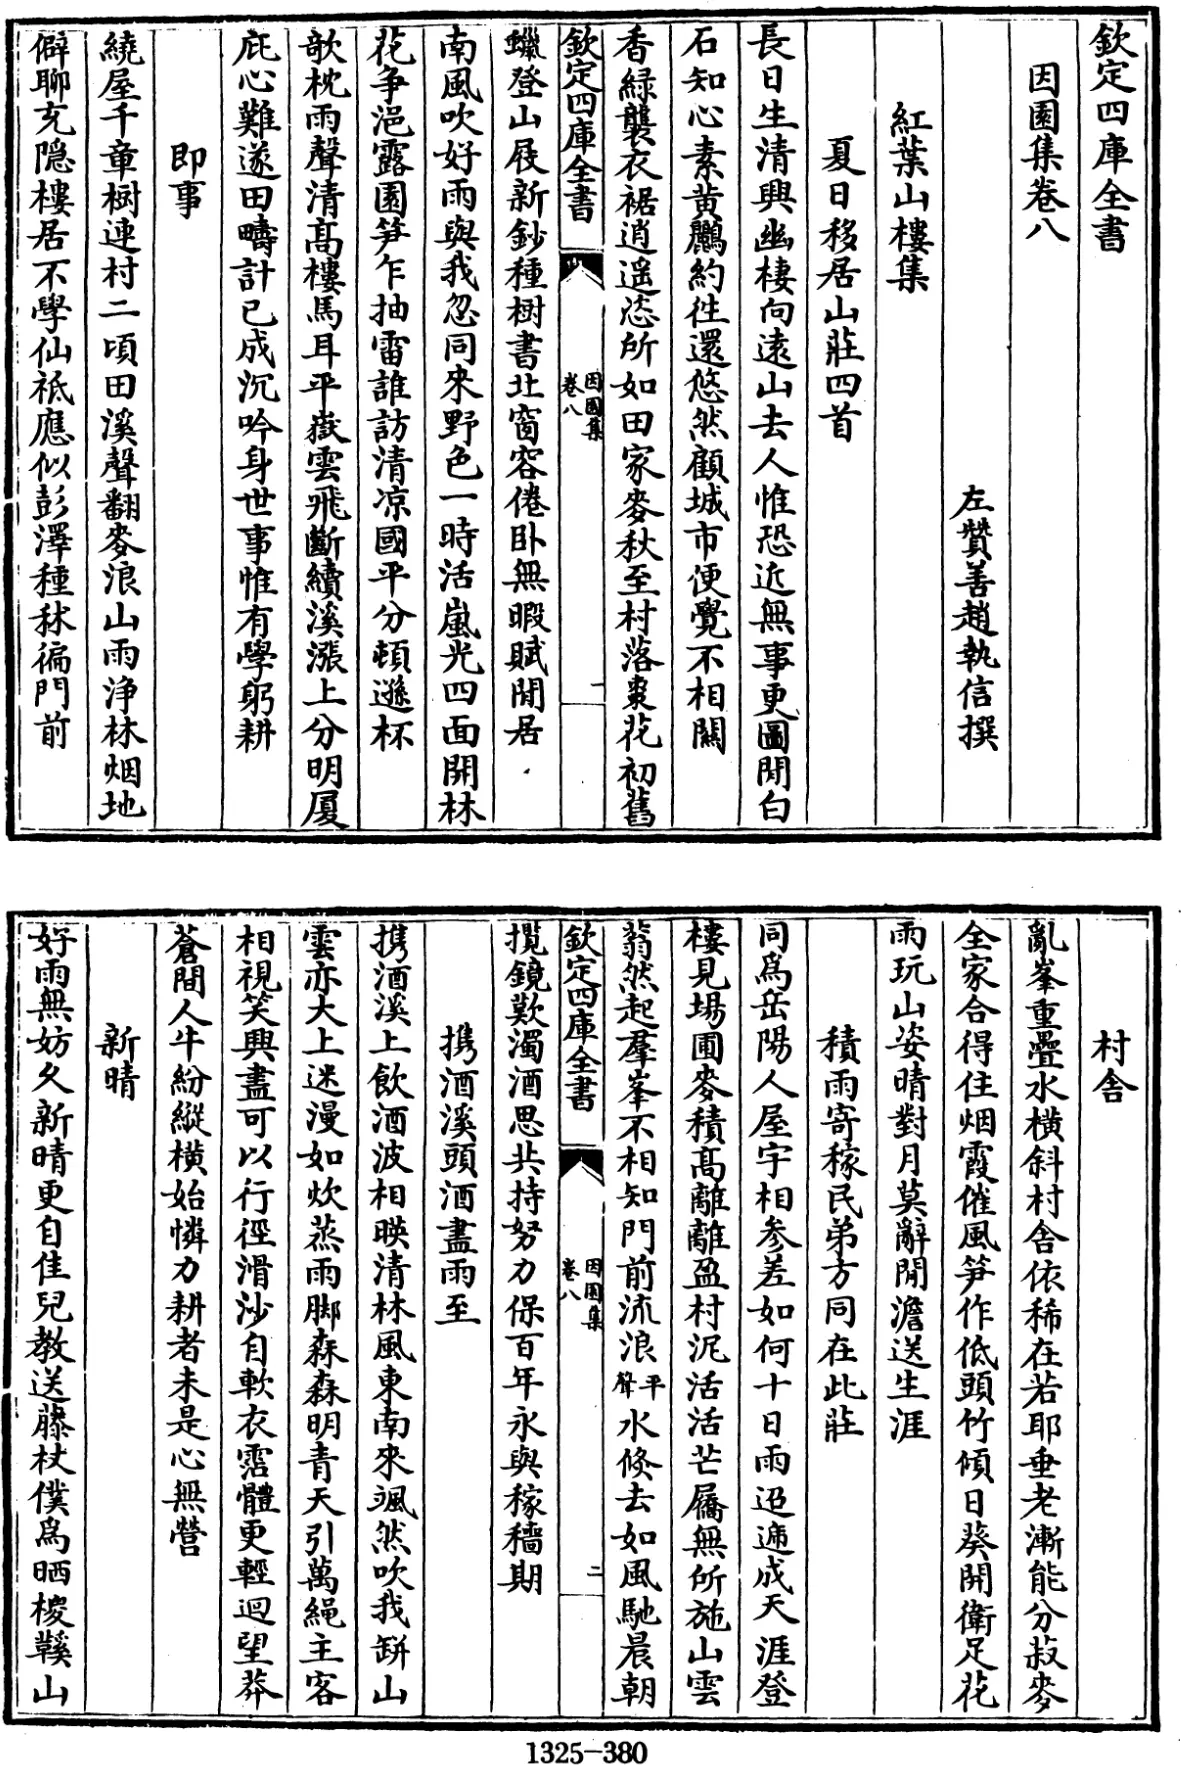 欽定四庫全書
因園集卷八
左贊善趙執信撰
紅葉山樓集
夏日移居山莊四首
長日生清興幽棲向遠山去人惟恐近無事更圖閒白
石知心素黄鸝約徃還悠然顧城市便覺不相關
香緑襲衣裾逍遥恣所如田家麥秋至村落棗花初舊
欽定四庫全書
因園集
卷八
一
蠟登山屐新鈔種樹書北窗容倦卧無暇賦閒居
南風吹好雨與我忽同來野色一時活嵐光四面開林
花争浥露園笋乍抽雷誰訪清凉國平分頓遜杯
欹枕雨聲清高樓馬耳平嶽雲飛斷續溪漲上分明厦
庇心難遂田疇計已成沉吟身世事惟有學躬耕
即事
繞屋千章樹連村二頃田溪聲翻麥浪山雨浄林烟地
僻聊充隐樓居不學仙祇應似彭澤種秫徧門前
村舍
亂峯重疊水横斜村舍依稀在若耶垂老漸能分菽麥
全家合得住烟霞催風笋作低頭竹傾日葵開衛足花
雨玩山姿晴對月莫辭閒澹送生涯
積雨寄稼民弟方同在此莊
同為岳陽人屋宇相参差如何十日雨迢遞成天涯登
樓見場圃麥積高離離盈村泥活活芒屩無所施山雲
蓊然起羣峯不相知門前流浪平聲水倏去如風馳晨朝
欽定四庫全書
因園集
卷八
二
攬鏡歎濁酒思共持努力保百年永與稼穡期
携酒溪頭酒盡雨至
携酒溪上飲酒波相暎清林風東南來颯然吹我缾山
雲亦大上迷漫如炊蒸雨脚森森明青天引萬繩主客
相視笑興盡可以行徑滑沙自軟衣霑體更輕迴望莽
蒼間人牛紛縱横始憐力耕者未是心無營
新晴
好雨無妨久新晴更自佳兒教送藤杖僕為晒椶鞵山
1325-380